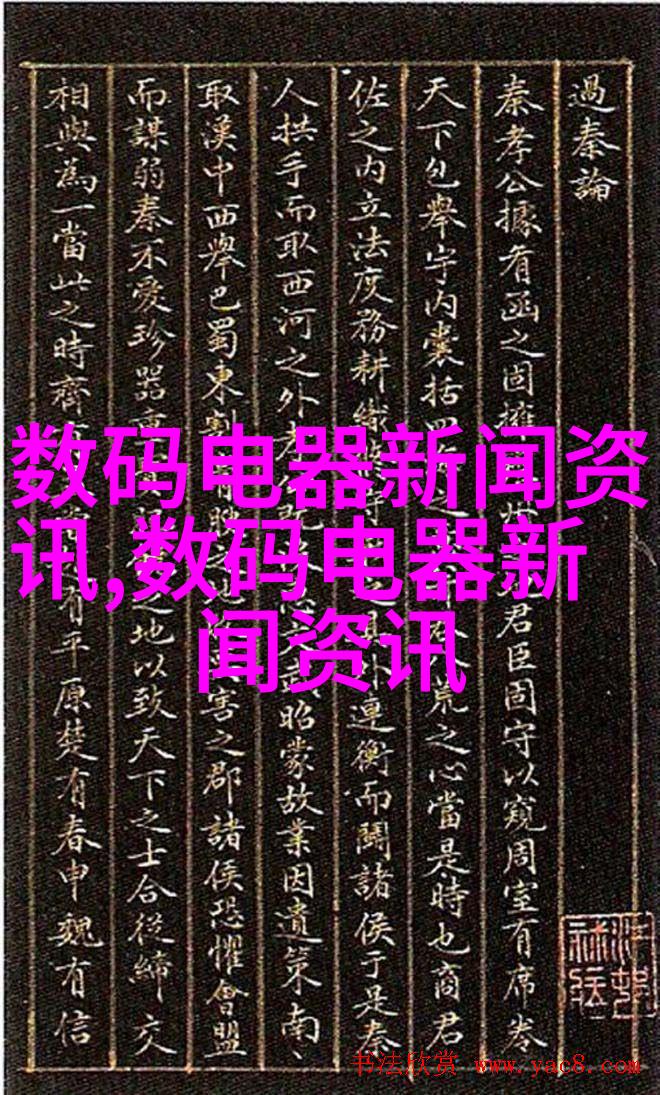 過秦論
秦孝公據有函之固擁
君臣固守以窺周室有席卷
天下包舉宇内囊括四
之
荒之心當是時也商君
佐之内立法度務耕織
連衡而鬪諸侯于是秦
人拱手而取西河之外
昭蒙故業因遺策南
取漢中西舉巴蜀東割
害之郡諸侯恐懼會盟
而謀弱秦不愛珍器重
之地以致天下之士合從締交
相與爲一當此之時齊
有平原楚有春申魏有信
数码电器新闻资
讯,数码电器新
闻资讯
书法欣赏 www.yac8.com